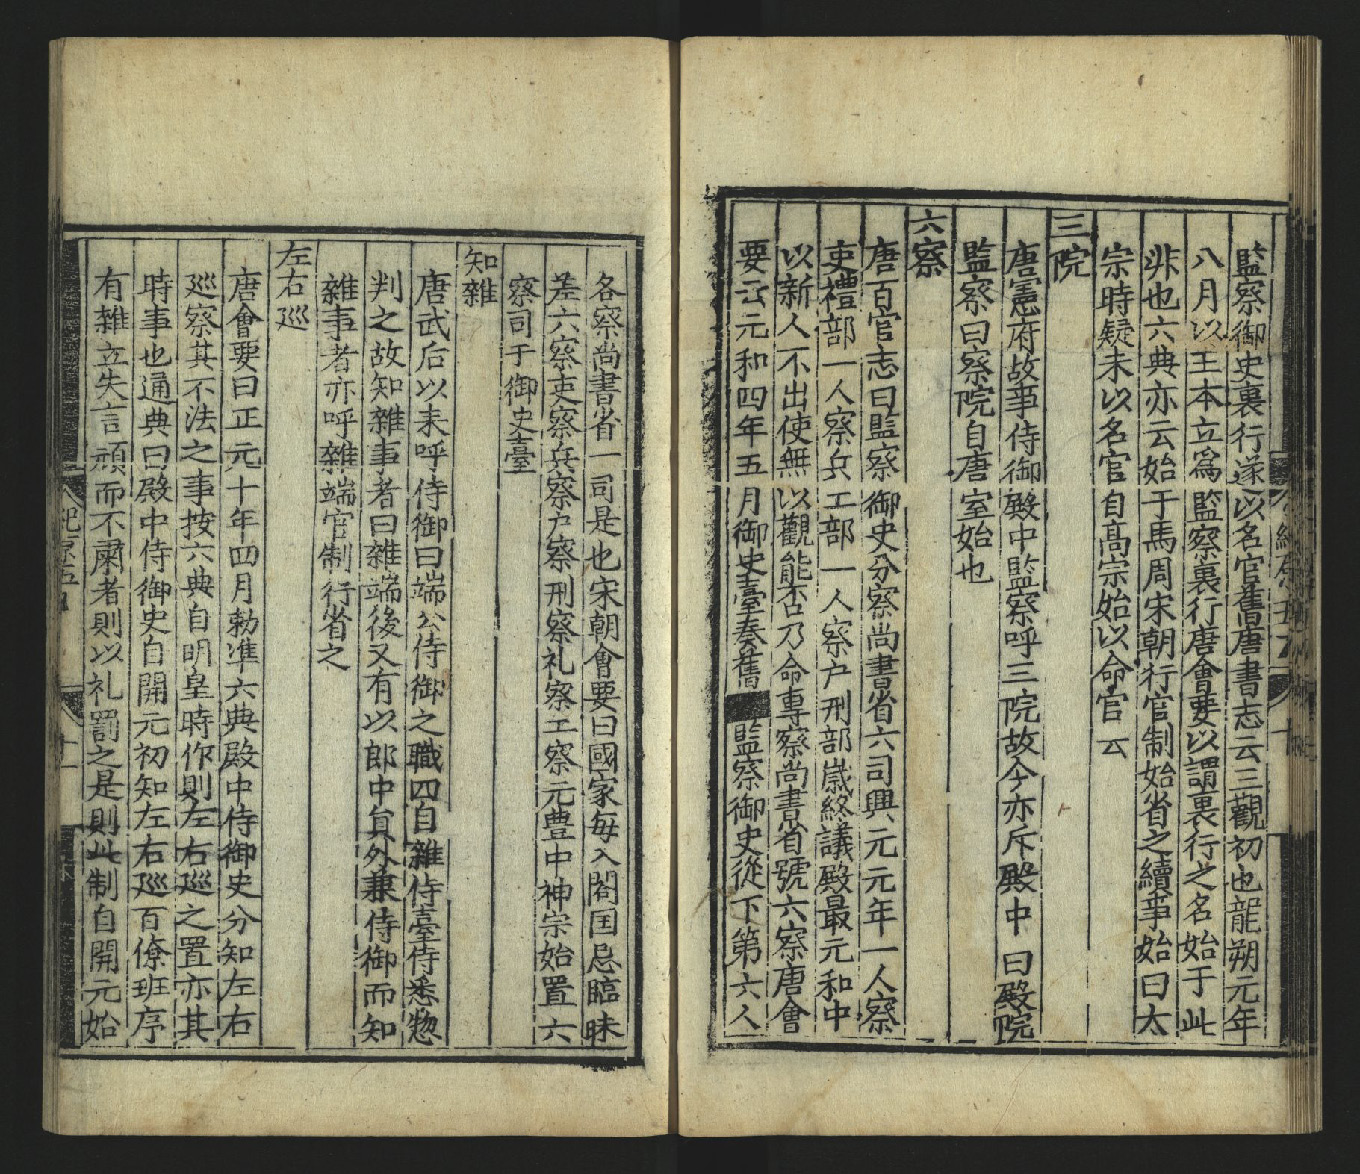 監察御史裏行遂以名官舊唐書志云三觀初也龍朔元年
八月以王本立爲監察裏行唐會要以謂裏行之名始于此
非也六典亦云始于馬周宋朝行官制始省之續事始曰太
宗時疑未以名官自髙宗始以命官云
三院
唐憲府故事侍御殿中監察呼三院故今亦斥殿中曰殿院
監察曰察院自唐室始也
六察
唐百官志曰監察御史分察尚書省六司興元元年一人察
吏禮部一人察兵工部一人察户刑部嵗終議殿最元和中
以新人不出使無以觀能否乃命專察尚書省號六察唐會
要云元和四年五月御史臺奏舊監察御史從下第六人
各察尚書省一司是也宋朝會要曰國家每入閤国忌臨時
差六察吏察兵察户察刑察礼察工察元豊中神宗始置六
察司于御史臺
知雜
唐武后以来呼侍御曰端公侍御之職四自雜侍臺侍悉惣
判之故知雜事者曰雜端後又有以郎中貟外兼侍御而知
雜事者亦呼雜端官制行省之
左右巡
唐會要曰正元十年四月勅准六典殿中侍御史分知左右
巡察其不法之事按六典自明皇時作則左右巡之置亦其
時事也通典曰殿中侍御史自開元初知左右巡百僚班序
有雜立失言頑而不肅者則以礼罰之是則此制自開元始
紀原五
十一